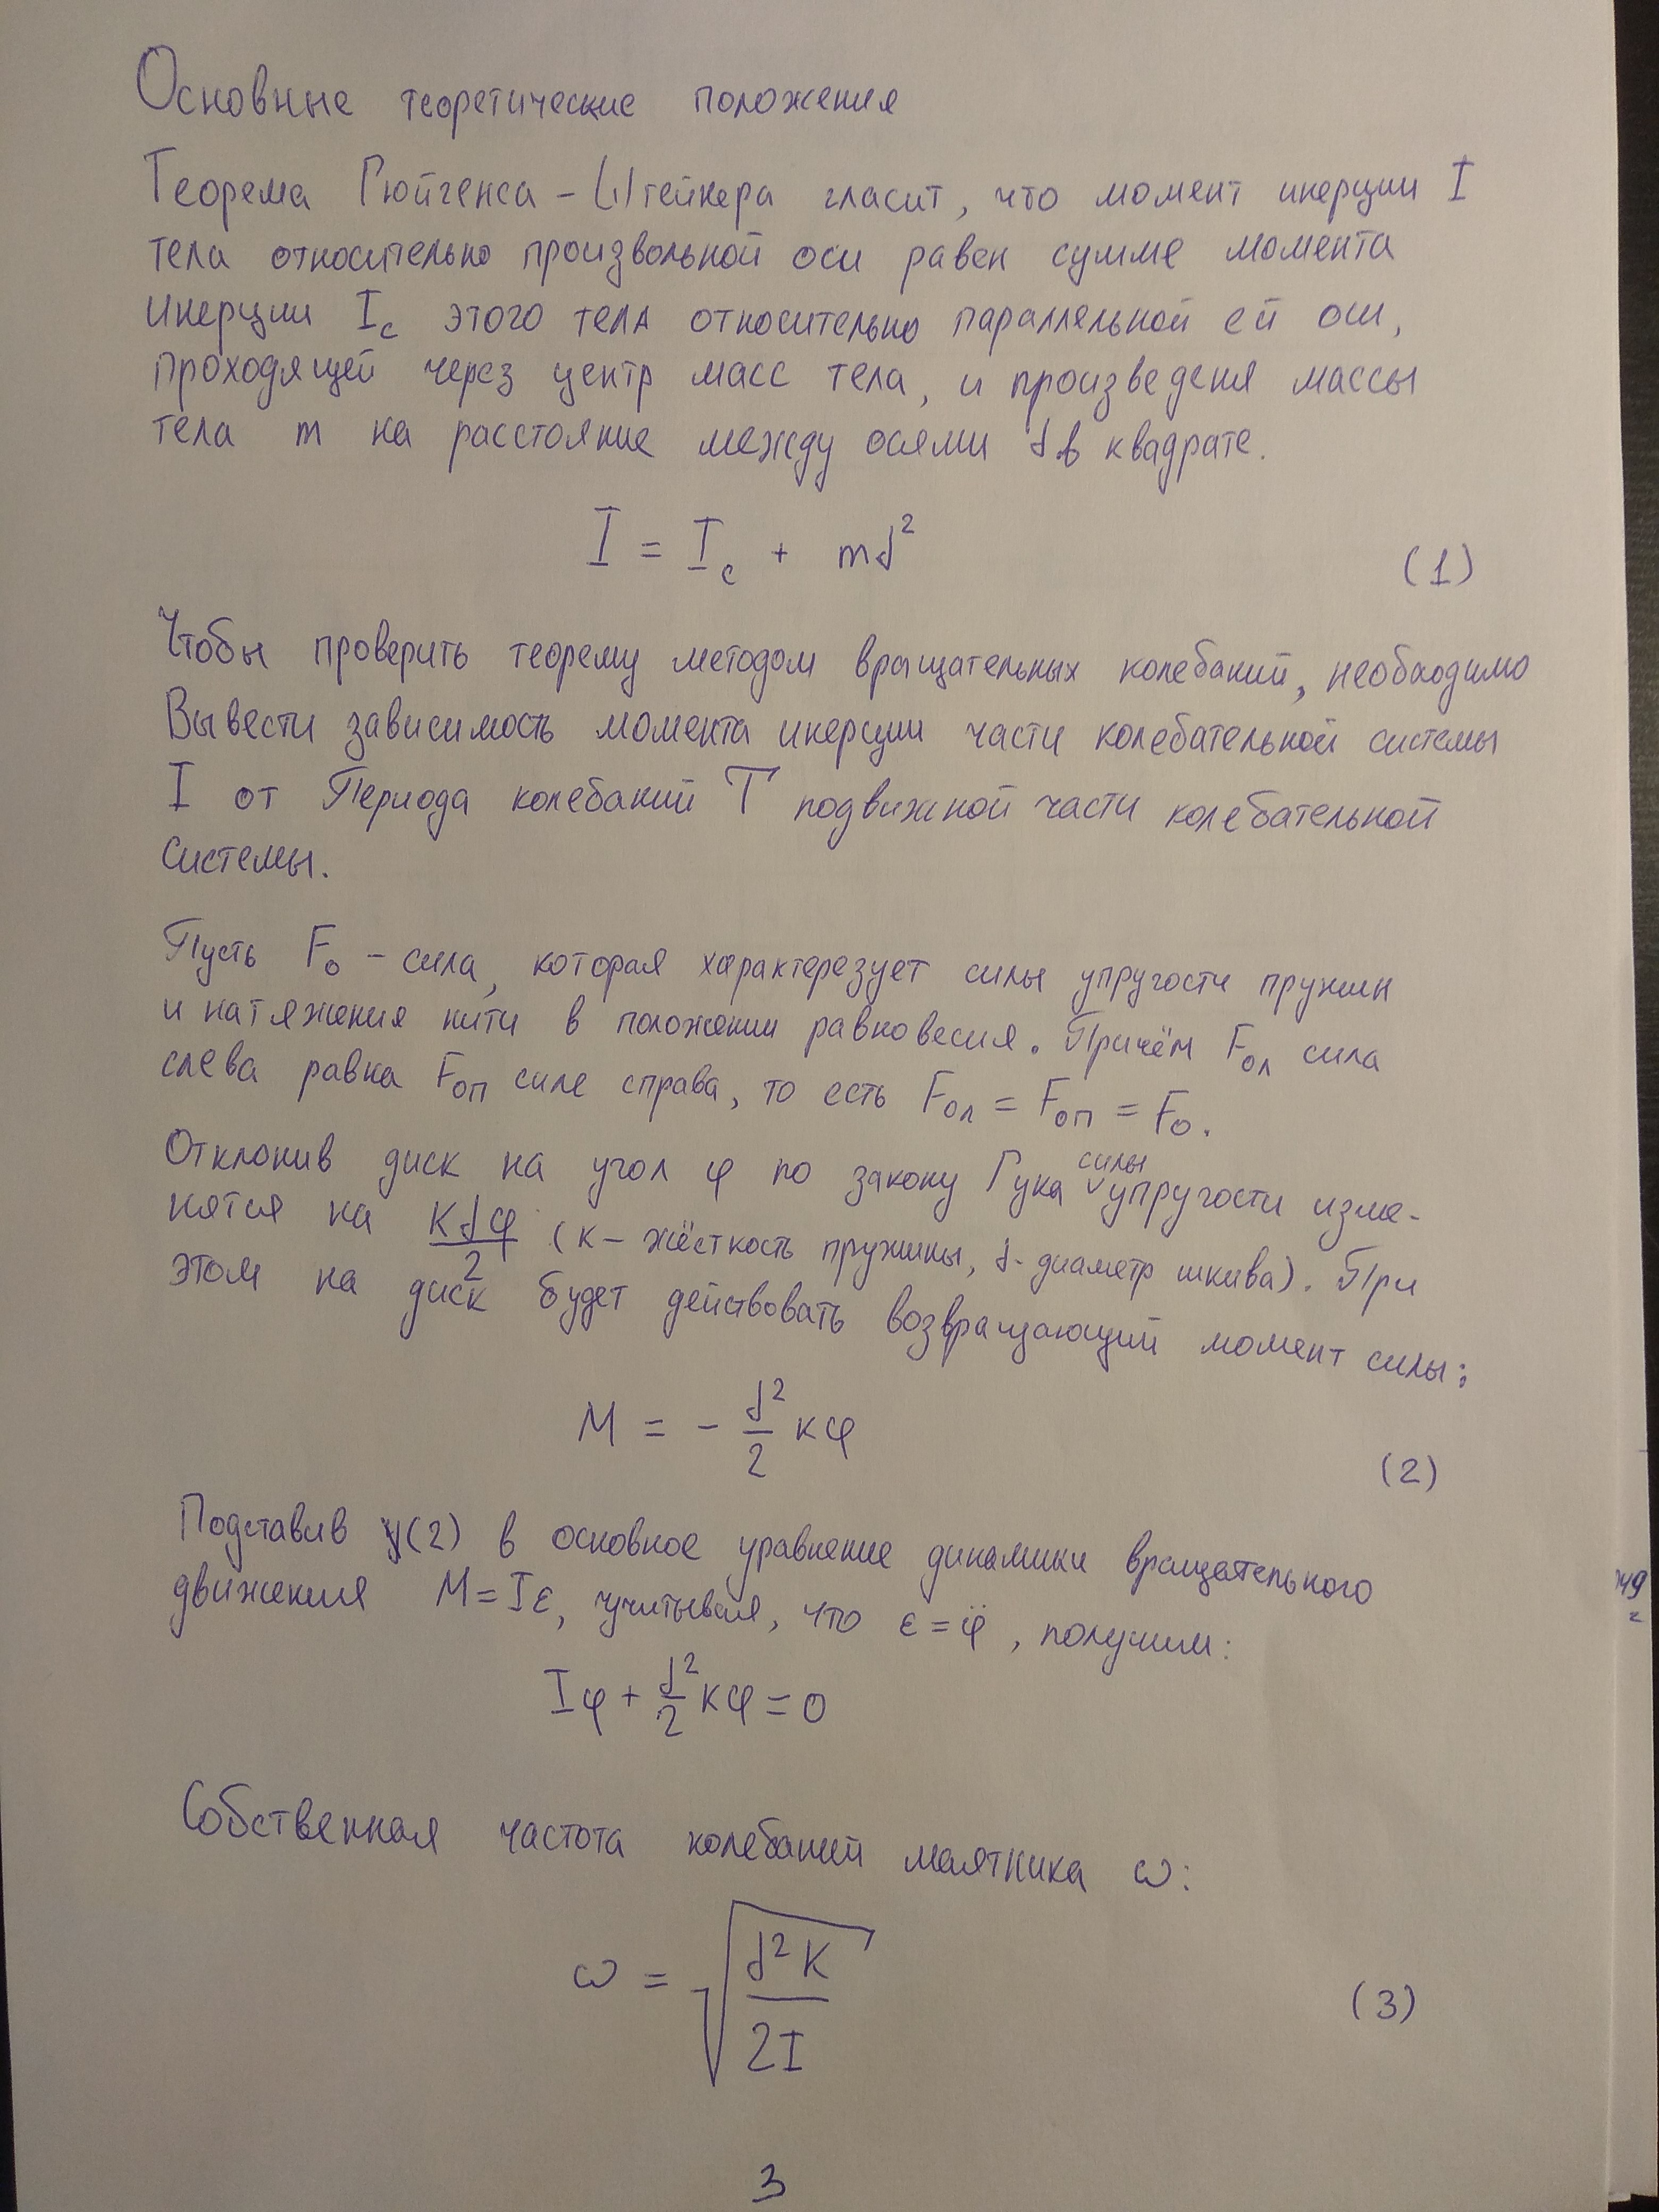 Основные теоретические положения
Теорема Гюйгенса – Штейнера гласит, что момент инерции I
тела относительно произвольной оси равен сумме момента
инерции I_c этого тела относительно параллельной ей оси,
проходящей через центр масс тела, и произведеня массы
тела m на расстояние между осями d в квадрате.
I = I_c + md²
(1)
Чтобы проверить теорему методом вращательных колебаний, необходимо
Вывести зависимость момента инерции части колебательной системы
I от Периода колебаний T подвижной части колебательной
системы.
Пусть F₀ – сила, которая характерезует силы упругости пружин
и натяжения нити в положении равновесия. Причём F₀л сила
слева равна F₀п силе справа, то есть F₀л = F₀п = F₀.
Отклонив диск на угол φ по закону Гука силы упругости изме-
нятся на kdφ/2 (k – жёсткость пружины, d - диаметр шкива). При
этом на диск будет действовать возвращающий момент силы:
M = - d²/2 kφ
(2)
Подставив (2) в основное уравнение динамики вращательного
движения M = Iε, учитывая, что ε = φ̈, получим:
Iφ + d²/2 kφ = 0
Собственная частота колебаний маятника ω:
ω = √(d²k/2I)
(3)
3